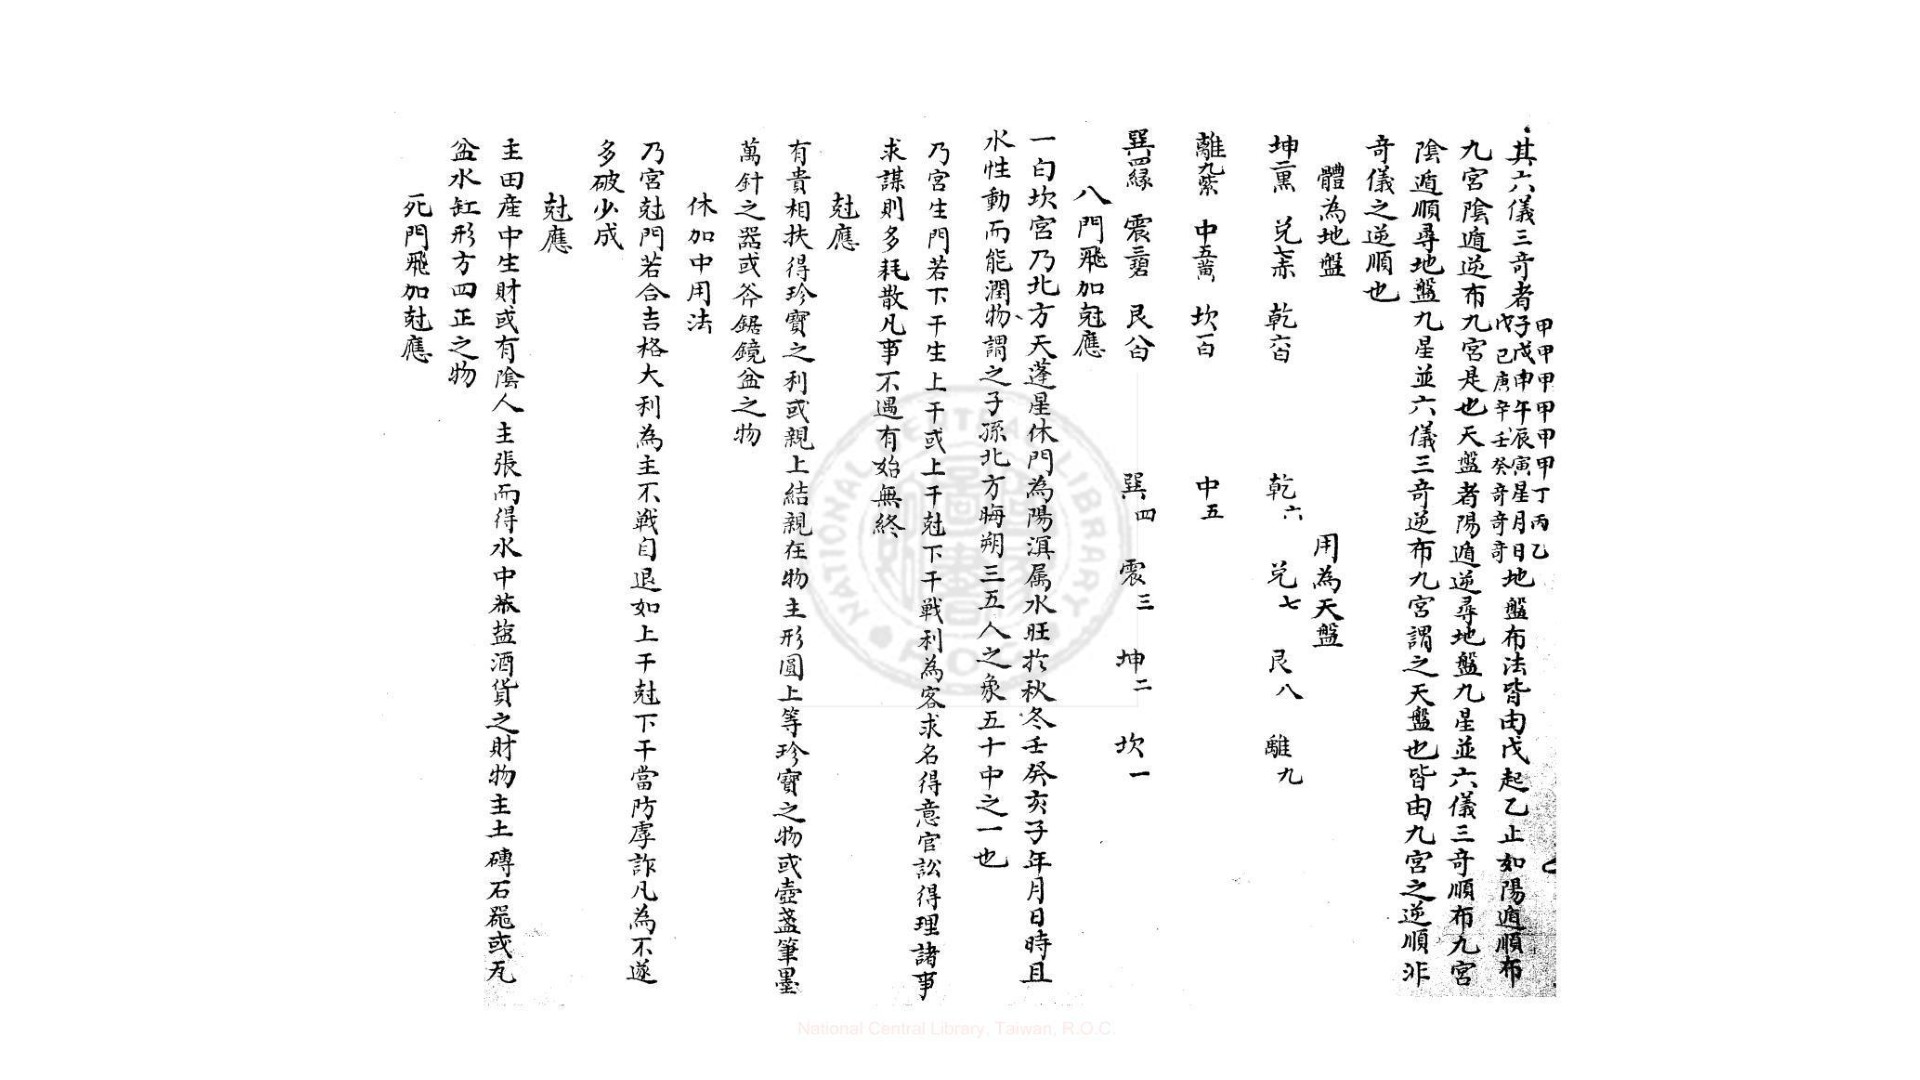 其六儀三奇者甲子戊甲戌己甲申庚甲午辛甲辰壬甲寅癸丁星奇丙月奇乙日奇地盤布法皆由戊起乙止如陽遁順布
九宮陰遁逆布九宮是也天盤者陽遁逆尋地盤九星並六儀三奇順布九宮
陰遁順尋地盤九星並六儀三奇逆布九宮謂之天盤也皆由九宮之逆順非
奇儀之逆順也
體為地盤 用為天盤
坤二黑 兌七赤 乾六白 乾六 兌七 艮八 離九
離九紫 中五黃 坎一白 中五
巽四緑 震三碧 艮八白 巽四 震三 坤二 坎一
八門飛加尅應
一白坎宮乃北方天蓬星休門為陽滇属水旺於秋冬壬癸亥子年月日時且
水性動而能潤物謂之子孫北方晦朔三五人之象五十中之一也
乃宮生門若下干生上干或上干尅下干戰利為客求名得意官訟得理諸事
求謀則多耗散凡事不遇有始無終
尅應
有貴相扶得珍寶之利或親上結親在物主形圓上等珍寶之物或壺盞筆墨
萬針之器或斧鋸鏡盆之物
休加中用法
乃宮尅門若合吉格大利為主不戰自退如上干尅下干當防虜詐凡為不遂
多破少成
尅應
主田産中生財或有陰人主張而得水中茶塩酒貨之財物主土磚石器或瓦
盆水缸形方四正之物
死門飛加尅應
National Central Library, Taiwan, R.O.C.